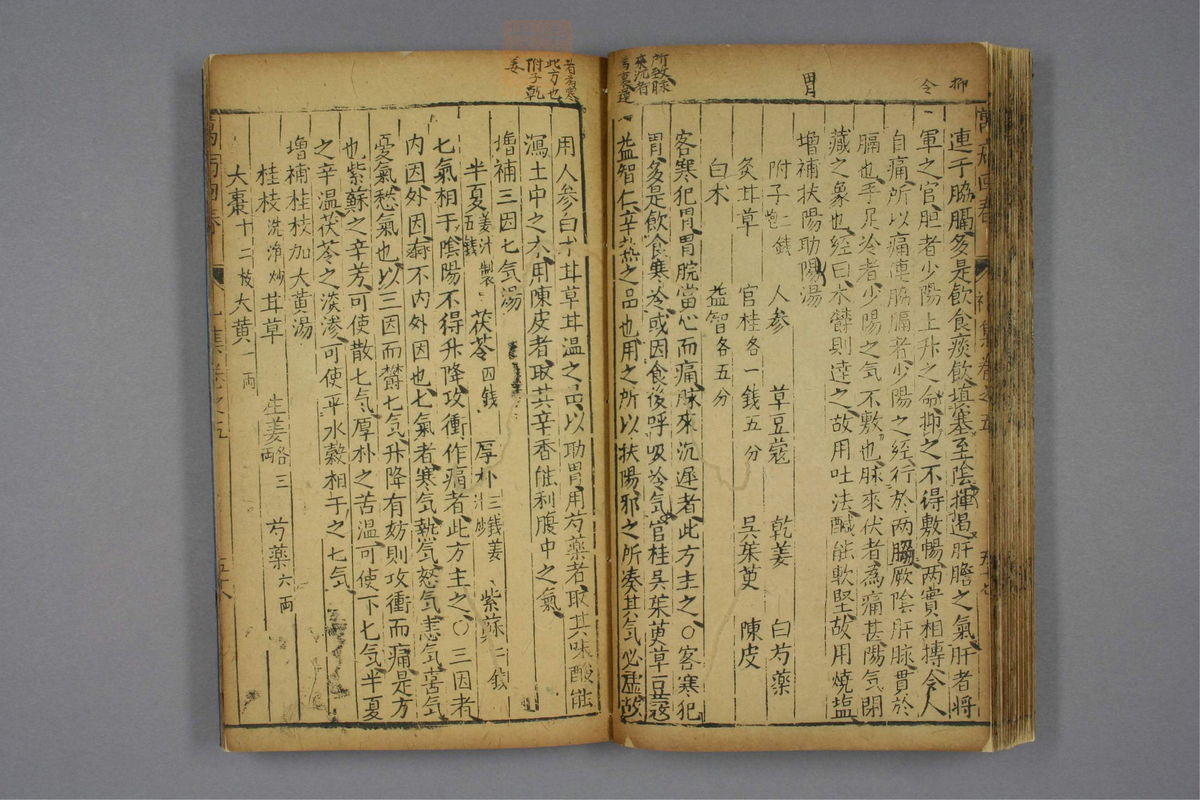 抑
令
胃
所致脉
来沉者
連于脇膈多是飲食痰飲填塞至陰揮遏肝膽之氣肝者將
軍之官胆者少陽上升之命抑之不得敷暢两實相搏令人
自痛所以痛連脇膈者少陽之経行於两脇厥陰肝脉貫於
膈也手足冷者少陽之气不敷也脉來伏者為痛甚陽気閉
藏之象也経曰木欝則達之故用吐法醎能軟堅故用焼塩
增補扶陽助陽湯
附子炮二銭 人参 草豆蔻 乾姜 白芍薬
炙甘草 官桂各一銭五分 呉茱萸 陳皮
白术 益智各五分
客寒犯胃胃脘當心而痛脉來沉遲者此方主之〇客寒犯
胃多是飲食寒冷或因食後呼吸冷気官桂呉茱萸草豆蔻
益智仁辛热之品也用之所以扶陽邪之所凑其気必虚故
者為寒
此方也
附子乾
姜
用人参白术甘草甘温之品以助胃用芍薬者取其味酸能
瀉土中之木用陳皮者取其辛香能利腹中之氣
增補三因七気湯
半夏姜汁製五銭 茯苓四銭 厚朴三銭姜汁炒 紫蘇二銭
七氣相干陰陽不得升降攻衝作痛者此方主之〇三因者
内因外因不内外因也七氣者寒気熱気怒気恚気喜気
憂氣愁氣也以三因而欝七気升降有妨則攻衝而痛是方
也紫蘇之辛芳可使散七気厚朴之苦温可使下七気半夏
之辛温茯苓之淡滲可使平水穀相干之七気
增補桂枝加大黄湯
桂枝洗淨炒 甘草 生姜各三両 芍薬六両
大棗十二枚 大黄一両